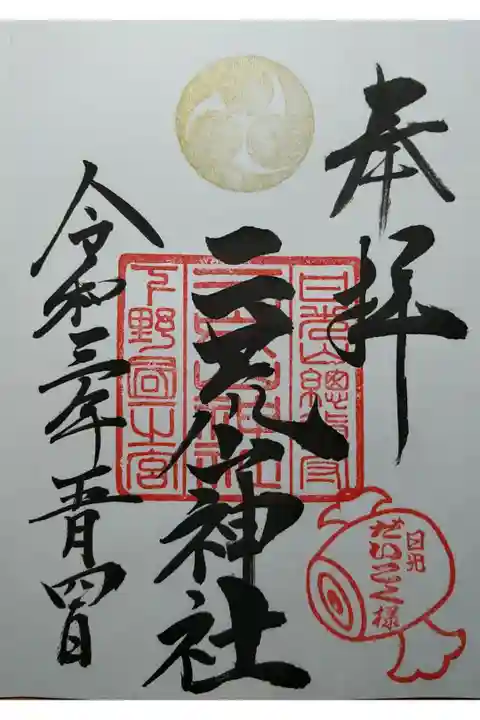 奉拝
日光山總鎮守
二荒山神社
下野國一宮
二荒山神社
令和三年五月四日
日光
だいこく様